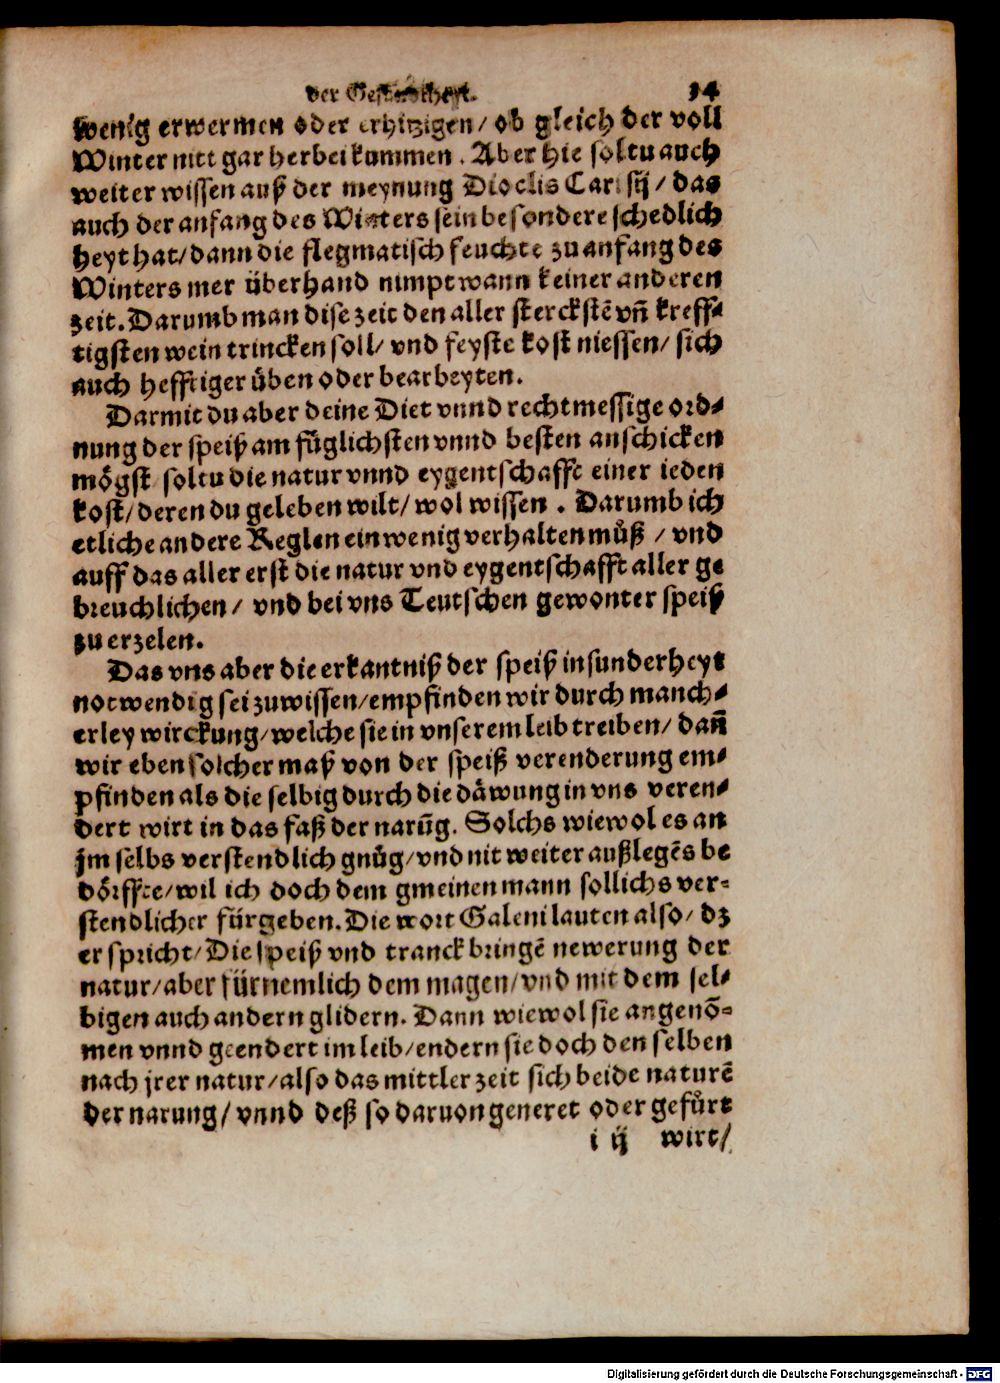 der Gesundtheyt. 34
wenig erwermen oder erhitzigen / ob gleich der voll
Winter nitt gar herbei kummen . Aber hie soltu auch
weiter wissen auß der meynung Dioclis Caristij / das
auch der anfang des Winters sein besondere schedlich
heyt hat / dann die flegmatisch feuchte zu anfang des
Winters mer überhand nimpt wann keiner anderen
zeit. Darumb man dise zeit den aller sterckstē vñ kreff⸗
tigsten wein trincken soll / vnd feyste kost niessen / sich
auch hefftiger üben oder bearbeyten.
Darmit du aber deine Diet vnnd rechtmessige ord⸗
nung der speiß am füglichsten vnnd besten anschicken
mögst / soltu die natur vnnd eygentschafft einer ieden
kost / deren du geleben wilt / wol wissen . Darumb ich
etliche andere Reglen ein wenig verhalten můß / vnd
auff das aller erst die natur vnd eygentschafft aller ge
breuchlichen / vnd bei vns Teutschen gewonter speiß
zu erzelen.
Das vns aber die erkantniß der speiß insunderheyt
notwendig sei zuwissen / empfinden wir durch manch⸗
erley wirckung / welche sie in vnserem leib treiben / dañ
wir eben solcher maß von der speiß verenderung em⸗
pfinden als die selbig durch die däwung in vns veren⸗
dert wirt in das faß der narũg. Solchs wiewol es an
jm selbs verstendlich gnůg / vnd nit weiter außlegēs be
dörffte / wil ich doch dem gmeinen mann sollichs ver⸗
stendlicher fürgeben. Die wort Galeni lauten also / dz
er spricht / Die speiß vnd tranck bringē newerung der
natur / aber fürnemlich dem magen / vnd mit dem sel⸗
bigen auch andern glidern. Dann wiewol sie angenō⸗
men vnnd geendert im leib / endern sie doch den selben
nach jrer natur / also das mittler zeit sich beide naturē
der narung / vnnd deß so daruon generet oder gefůrt
i ij wirt /
Digitalisierung gefördert durch die Deutsche Forschungsgemeinschaft - DFG